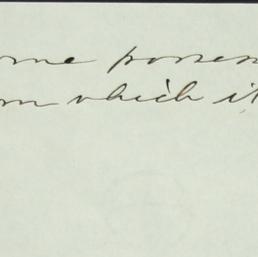 ome posses
om which it